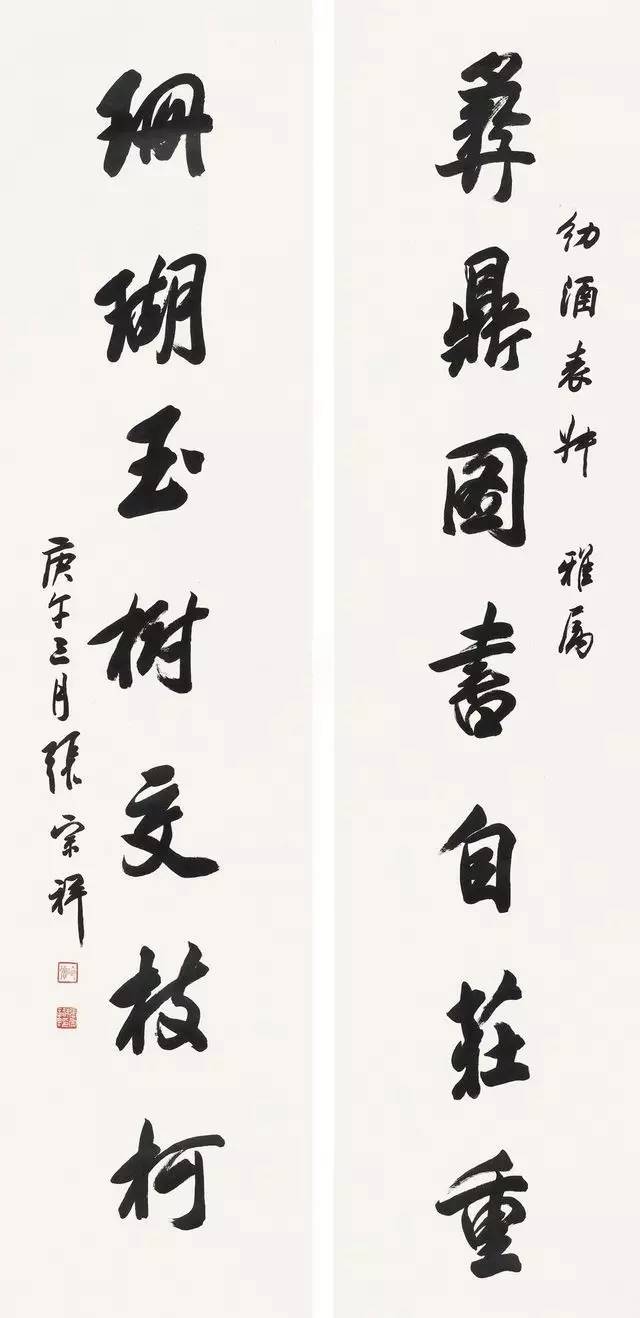 幼酒表 雅属
彝鼎圖書自莊重
珊瑚玉樹交枝柯
庚午三月張宗祥